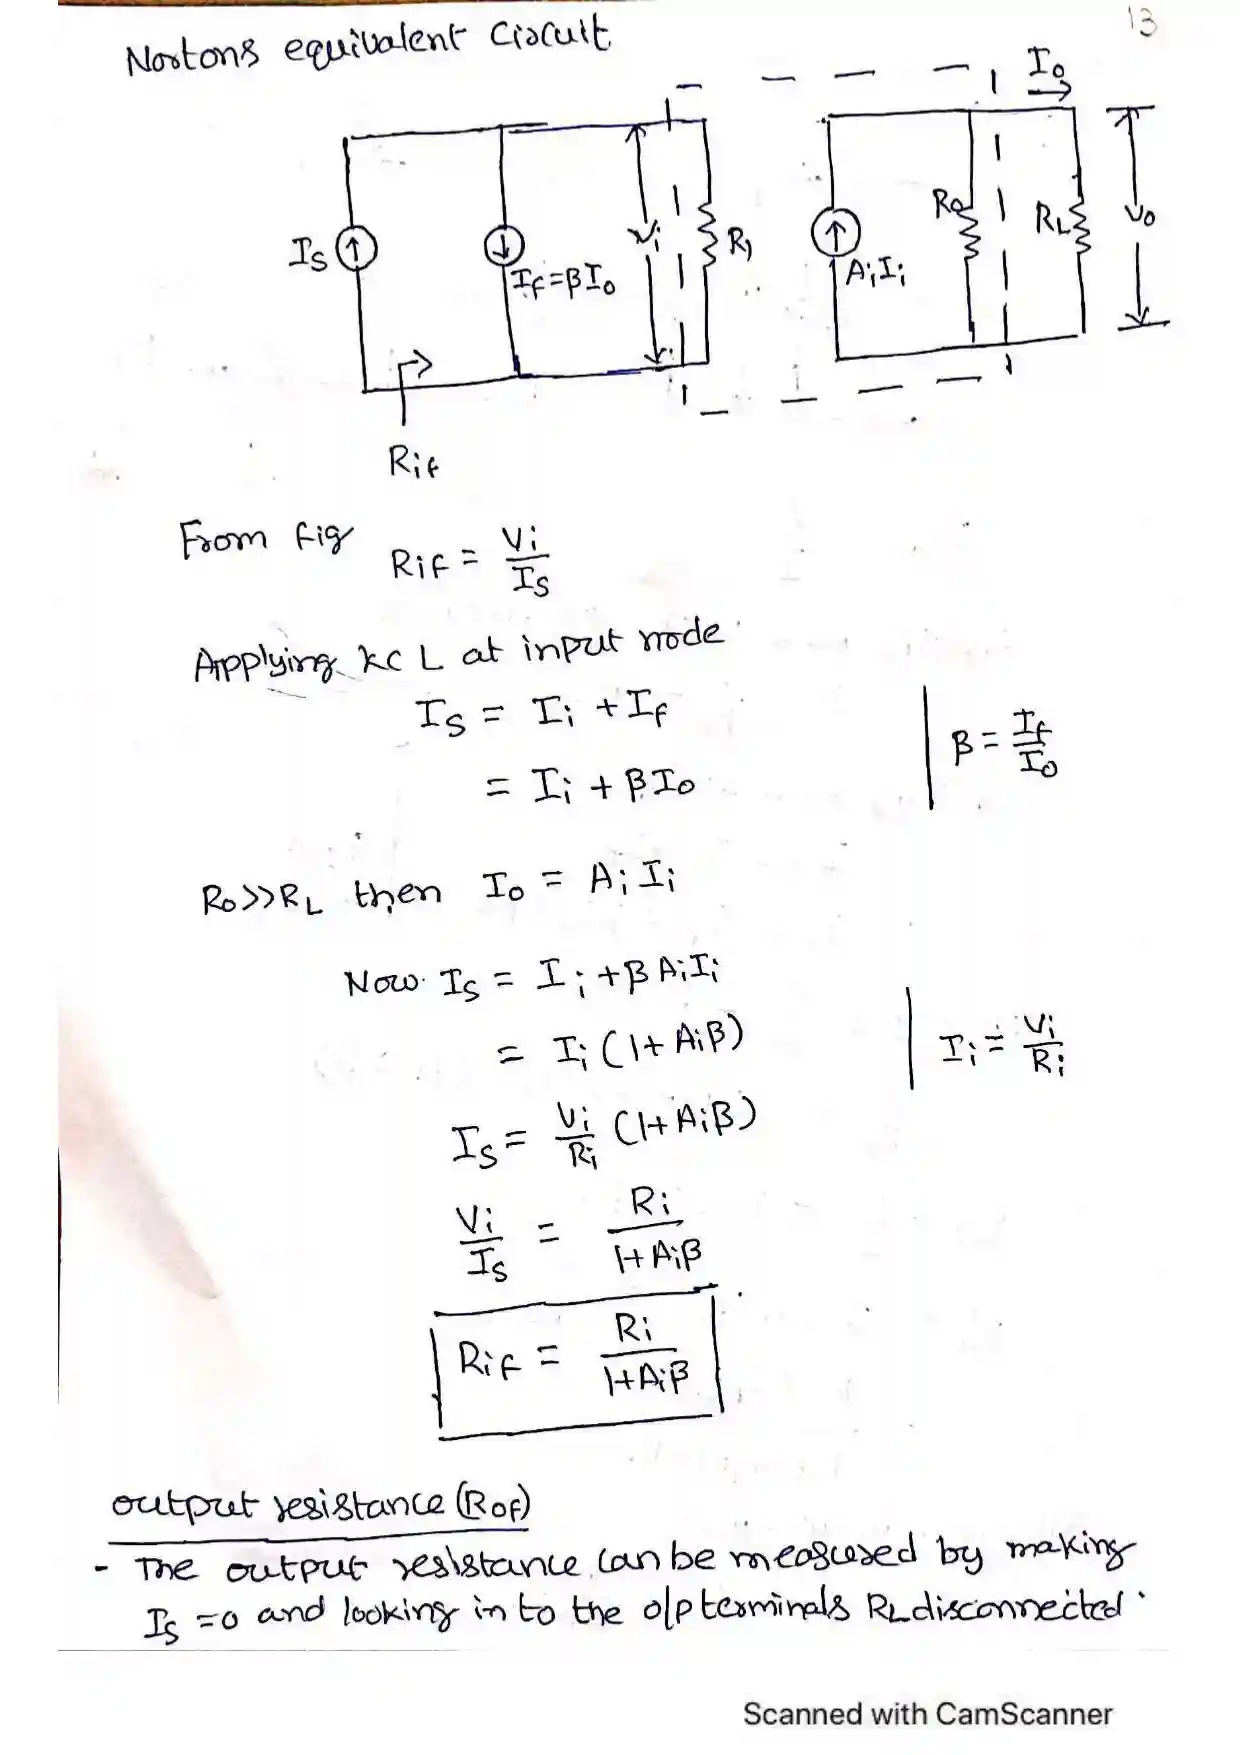 13
Nortons equivalent Circuit
Io
Is
If=βIo
Vi
R1
AiIi
Ro
RL
Vo
Rif
From fig Rif = Vi/Is
Applying KCL at input node
Is = Ii + If
β = If/Io
= Ii + βIo
Ro>>RL then Io = AiIi
Now Is = Ii + βAiIi
= Ii (1+Aiβ)
Ii = Vi/Ri
Is = Vi/Ri (1+Aiβ)
Vi/Is = Ri/1+Aiβ
Rif = Ri/1+Aiβ
output resistance (Rof)
- The output resistance can be measured by making
Is =0 and looking in to the o/p terminals RL disconnected.
Scanned with CamScanner